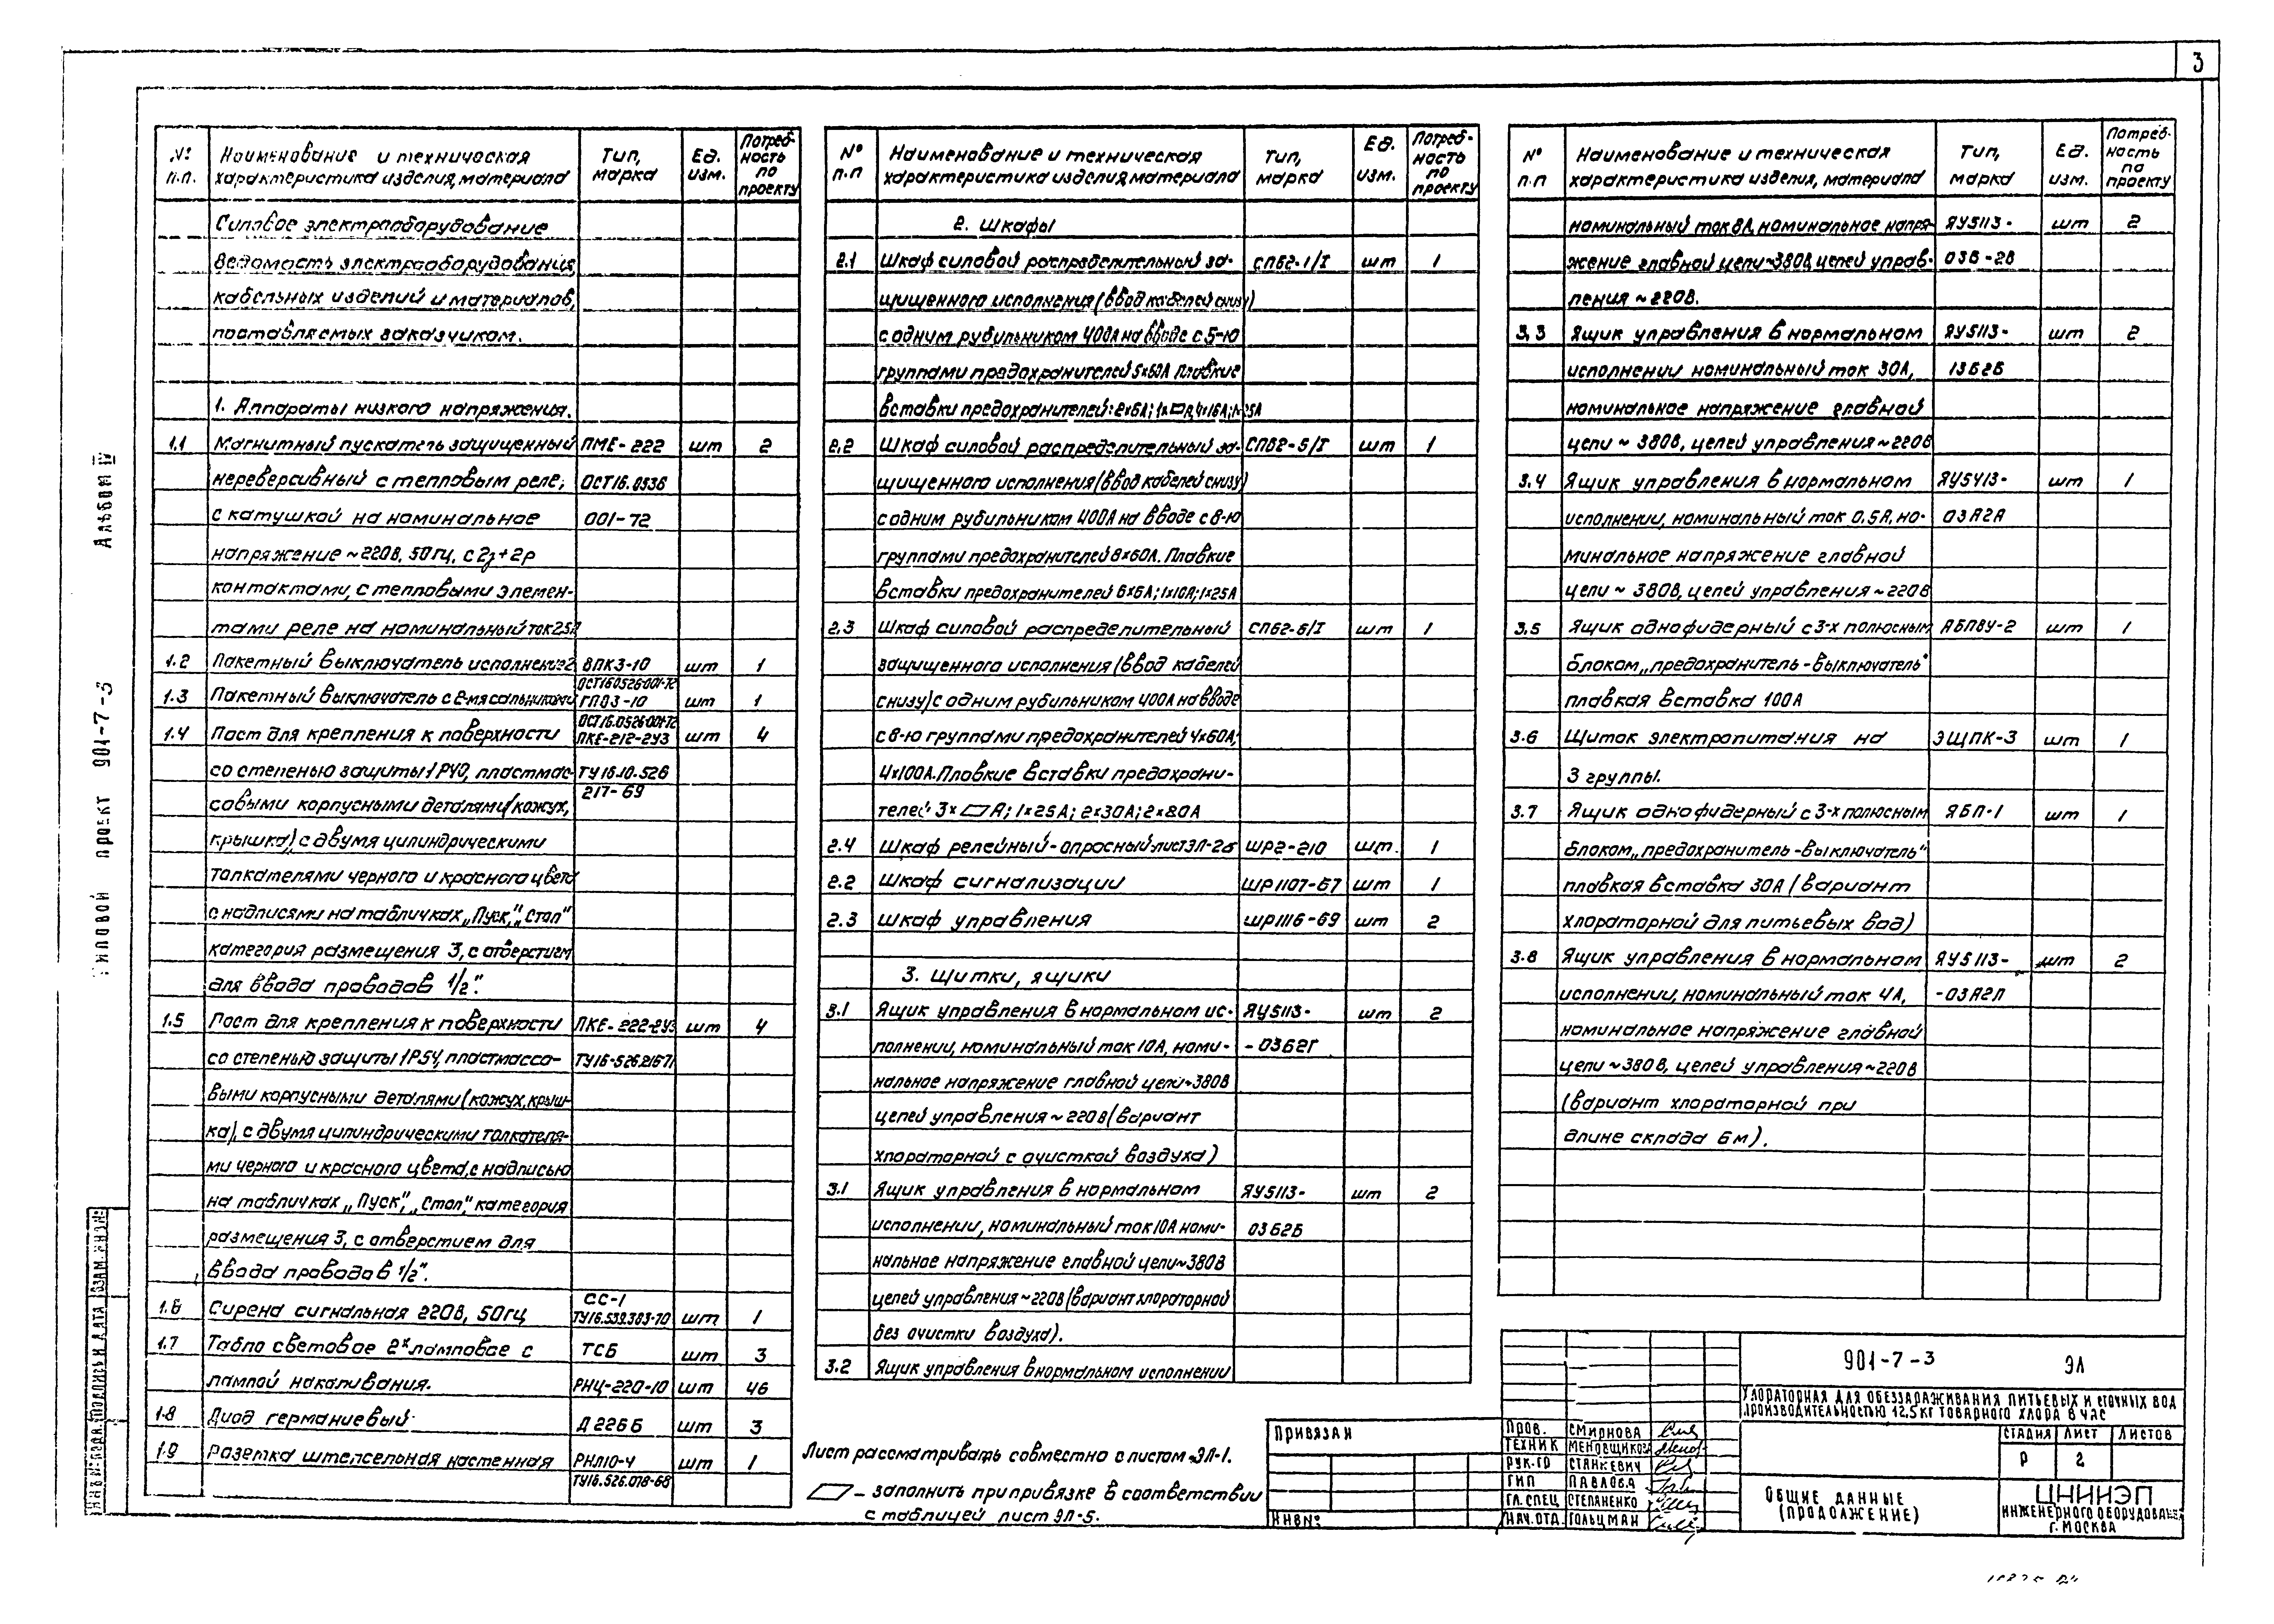 3
Альбом IV
Типовой проект 901-7-3
№ п.п. Наименование и техническая характеристика изделия, материала Тип, марка Ед. изм. Потребность по проекту
Силовое электрооборудование
Ведомость электрооборудования,
кабельных изделий и материалов,
поставляемых заказчиком.
1. Аппараты низкого напряжения.
1.1 Магнитный пускатель защищенный ПМЕ-222 шт 2
нереверсивный с тепловым реле, ОСТ16.0536
с катушкой на номинальное 001-72
напряжение ~220В, 50гц, с 2з+2р
контактами, с тепловыми элемен-
тами реле на номинальный ток 25А
1.2 Пакетный выключатель исполнение2 ВПК3-10 шт 1
ОСТ16.0526.001-72
1.3 Пакетный выключатель с 2-мя сальниками ГПВ3-10 шт 1
ОСТ16.0526.001-72
1.4 Пост для крепления к поверхности ПКЕ-212-2У3 шт 4
со степенью защиты 1РУ0, пластмас- ТУ16.10.526
217-69
совыми корпусными деталями (кожух,
крышка) с двумя цилиндрическими
толкателями черного и красного цвета
с надписями на табличках „Пуск", „Стоп"
категория размещения 3, с отверстием
для ввода проводов 1/2".
1.5 Пост для крепления к поверхности ПКЕ-222-2У3 шт 4
со степенью защиты 1Р54, пластмассо- ТУ16-526.216-71
выми корпусными деталями (кожух, крыш-
ка), с двумя цилиндрическими толкателя-
ми черного и красного цвета, с надписью
на табличках „Пуск", „Стоп", категория
размещения 3, с отверстием для
ввода проводов 1/2".
1.6 Сирена сигнальная 220В, 50гц СС-1 шт 1
ТУ16.539.383-70
1.7 Табло световое 2х ламповое с ТСБ шт 3
лампой накаливания. РНЦ-220-10 шт 46
1.8 Диод германиевый. Д226Б шт 3
1.9 Розетка штепсельная настенная РНЛ10-4 шт 1
ТУ16.526.018-68
№ п.п Наименование и техническая характеристика изделия, материала Тип, марка Ед. изм. Потреб-ность по проекту
2. Шкафы
2.1 Шкаф силовой распределительный за- СПБ2-1/I шт 1
щищенного исполнения (ввод кабелей снизу)
с одним рубильником 400А на вводе с 5-ю
группами предохранителей 5х60А Плавкие
вставки предохранителей: 2х6А; 1х▱А, 4х16А; 1х25А
2.2 Шкаф силовой распределительный за- СПБ2-5/I шт 1
щищенного исполнения (ввод кабелей снизу)
с одним рубильником 400А на вводе с 8-ю
группами предохранителей 8х60А. Плавкие
вставки предохранителей 6х6А; 1х10А; 1х25А
2.3 Шкаф силовой распределительный СПБ2-6/I шт 1
защищенного исполнения (ввод кабелей
снизу) с одним рубильником 400А на вводе
с 8-ю группами предохранителей 4х60А;
4х100А. Плавкие вставки предохрани-
телей 3х▱А; 1х25А; 2х30А; 2х80А
2.4 Шкаф релейный-опросный-лист ЭЛ-28 ШР2-210 шт. 1
2.2 Шкаф сигнализации ШР1107-67 шт 1
2.3 Шкаф управления ШР1116-69 шт 2
3. Щитки, ящики
3.1 Ящик управления в нормальном ис- ЯУ5113- шт 2
полнении, номинальный ток 10А, номи- -03Б2Г
нальное напряжение главной цепи ~380В
цепей управления ~220В (вариант
хлораторной с очисткой воздуха)
3.1 Ящик управления в нормальном ЯУ5113- шт 2
исполнении, номинальный ток 10А номи- 03Б2Б
нальное напряжение главной цепи ~380В
цепей управления ~220В (вариант хлораторной
без очистки воздуха).
3.2 Ящик управления в нормальном исполнении
№ п.п Наименование и техническая характеристика изделия, материала Тип, марка Ед. изм. Потреб-ность по проекту
номинальный ток 8А, номинальное напря- ЯУ5113- шт 2
жение главной цепи ~380В, цепей управ- 03В-2В
ления ~220В.
3.3 Ящик управления в нормальном ЯУ5113- шт 2
исполнении номинальный ток 30А, 13Б2Б
номинальное напряжение главной
цепи ~ 380В, цепей управления ~220В
3.4 Ящик управления в нормальном ЯУ5413- шт 1
исполнении, номинальный ток 0.5А, но- 03А2А
минальное напряжение главной
цепи ~ 380В, цепей управления ~220В
3.5 Ящик однофидерный с 3-х полюсным ЯБПВУ-2 шт 1
блоком „предохранитель-выключатель"
плавкая вставка 100А
3.6 Щиток электропитания на ЭЩПК-3 шт 1
3 группы.
3.7 Ящик однофидерный с 3-х полюсным ЯБП-1 шт 1
блоком „предохранитель-выключатель"
плавкая вставка 30А (вариант
хлораторной для питьевых вод)
3.8 Ящик управления в нормальном ЯУ5113- шт 2
исполнении, номинальный ток 4А, -03А2Л
номинальное напряжение главной
цепи ~380В, цепей управления ~220В
(вариант хлораторной при
длине склада 6м).
Лист рассматривать совместно с листом ЭЛ-1.
▱ – заполнить при привязке в соответствии
с таблицей лист ЭЛ-5.
Привязан
ИНВ №
901-7-3 ЭЛ
Хлораторная для обеззараживания питьевых и сточных вод
производительностью 12,5 кг товарного хлора в час
Пров. Смирнова
Техник Меновщикова
Рук.гр Станкевич
ГИП Павлова
Гл.спец Степаненко
Нач.отд. Гольцман
Стадия Лист Листов
Р 2
Общие данные
(продолжение)
ЦНИИЭП
инженерного оборудован
г. Москва
Инв № подл. Подпись и дата Взам. инв №